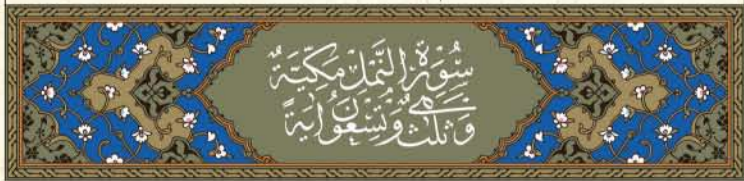 سُورَةُ النَّمْلِ مَكِّيَّةٌ
وَهِيَ ثَلٰثٌ وَتِسْعُونَ اٰيَةً